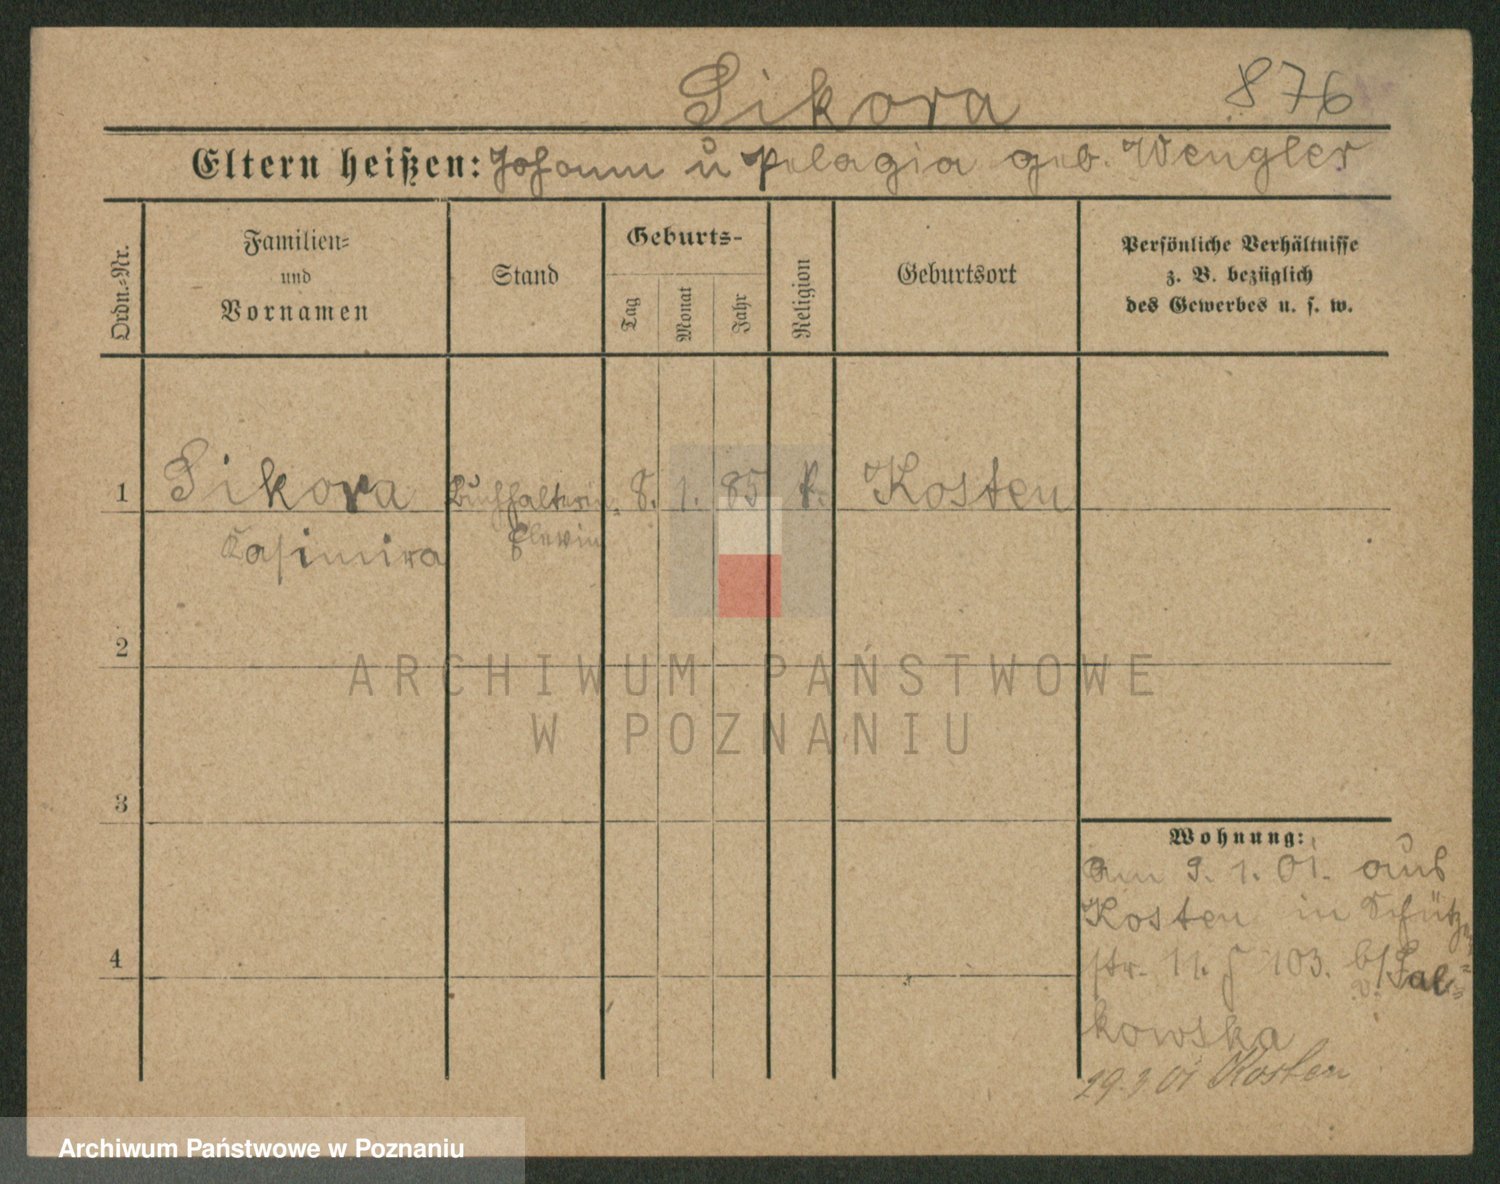 Sikora 876
Eltern heißen: Johann u Pelagia geb. Wengler
Ordn.-Nr.
Familien-
und
Vornamen
Stand
Geburts-
Tag
Monat
Jahr
Religion
Geburtsort
Persönliche Verhältnisse
z. B. bezüglich
des Gewerbes u. s. w.
1 Sikora Buchhalterin- 8. 1. 85 k. Kosten
Kasimira Elevin
2
3
4
Wohnung:
Am 9. 1. 01. aus
Kosten in Schützen
str. 11. 103. b/
kowska
29.3.01 Kosten
ARCHIWUM PAŃSTWOWE
W POZNANIU
Archiwum Państwowe w Poznaniu